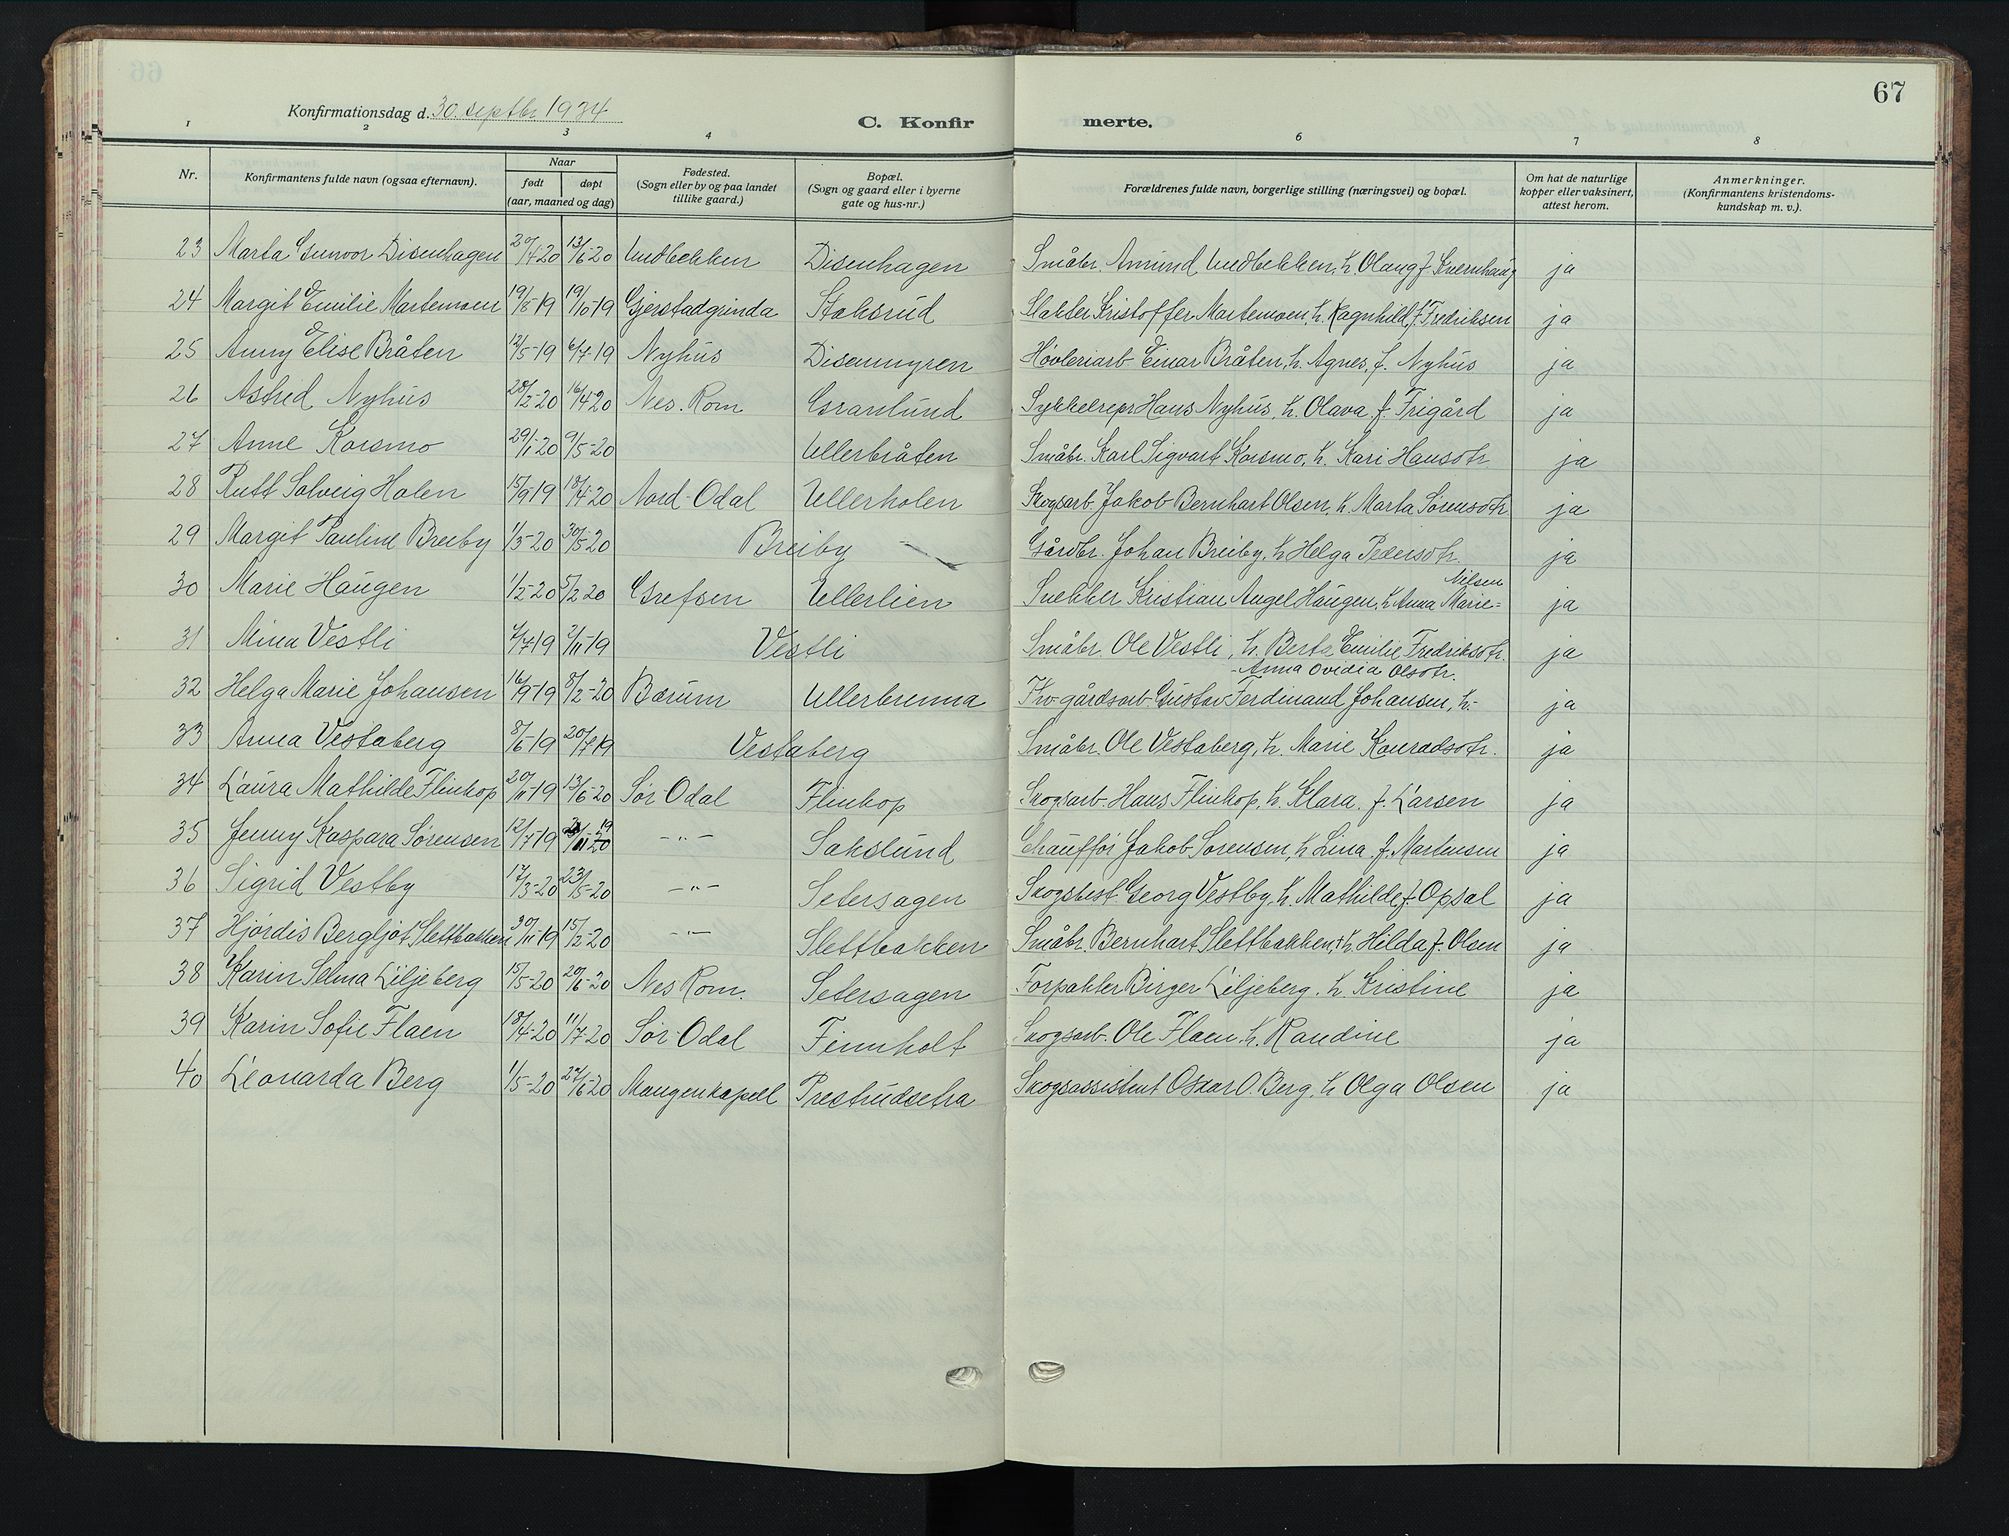 67
Konfirmationsdag d. 30. septbr 1934
C. Konfir merte.
1 2 3 4 6 7 8
Nr. Konfirmantens fulde navn (ogsaa efternavn). Naar født døpt (aar, maaned og dag) Fødested. (Sogn eller by og paa landet tillike gaard.) Bopæl. (Sogn og gaard eller i byerne gate og hus-nr.) Forældrenes fulde navn, borgerlige stilling (næringsvei) og bopæl. Om hat de naturlige kopper eller vaksinert, attest herom. Anmerkninger. (Konfirmantens kristendoms- kundskap m. v.).
23 Marta Gunvor Disenhagen 20/4-20 13/6-20 Lundbekken Disenhagen Småbr. Amund Lundbekken, h. Olaug f. Kvernhaug ja
24 Margit Emilie Martemoen 19/8-19 19/10-19 Gjerstadgrinda Stoksrud Slakter Kristoffer Martemoen, h. Ragnhild f. Fredriksen ja
25 Anny Elise Bråten 12/5-19 6/7-19 Nyhus Disenmyren Høvleriarb. Einar Bråten, h. Agnes, f. Nyhus ja
26 Astrid Nyhus 28/2-20 16/4-20 Nes. Rom Granlund Sykkelrepr Hans Nyhus, h. Olava, f. Frigård ja
27 Anne Korsmo 29/1-20 9/5-20 Ullerbråten Småbr. Karl Sigvart Korsmo, h. Kari Hansdtr ja
28 Rutt Solveig Holen 15/9-19 18/4-20 Nord-Odal Ullerholen Skogsarb. Jakob Bernhart Olsen, h. Marta Sørensdtr ja
29 Margit Pauline Breiby 1/3-20 30/5-20 Breiby Gårdbr. Johan Breiby, h. Helga Pedersdtr. ja
30 Marie Haugen 1/2-20 5/2 20 Grefsen Ullerlien Snekker Kristian Angel Haugen, h. Anna Marie= Nilsen ja
31 Mina Vestli 4/7-19 2/11-19 Vestli Småbr. Ole Vestli, h. Berte Emilie Fredriksdtr. ja
32 Helga Marie Johansen 16/9-19 8/2-20 Bærum Ullerbrenna Fhv gårdsarb Gustav Ferdinand Johansen, h.- -Anna Ovidia Olsdtr. ja
33 Anna Vestaberg 8/6-19 20/7 19 Vestaberg Småbr. Ole Vestaberg, h. Marie Konradsdtr. ja
34 Laura Mathilde Flinkop 20/11-19 13/6-20 Sør-Odal Flinkop Skogsarb. Hans Flinkop, h. Klara, f. Larsen ja
35 Jenny Kaspara Sørensen 12/7-19 -"- Sakslund Chauffør Jakob Sørensen, h. Lina f. Martinsen ja
36 Sigrid Vestby 17/3-20 23/5-20 -"- Setersagen Skogsbest. Georg Vestby, h. Mathilde f. Opsal ja
37 Hjørdis Bergljot Slettbakken 30/11-19 15/2-20 -"- Slettbakken Småbr. Bernhart Slettbakken, h. Hilda f. Olsen ja
38 Karin Selma Liljeberg 15/5-20 20/6-20 Nes Rom. Setersagen Forpakter Birger Liljeberg, h. Kristine ja
39 Karin Sofie Flaen 18/4-20 11/7-20 Sør-Odal Finnholt Skogsarb. Ole Flaen, h. Randine ja
40 Leonarda Berg 1/5-20 24/6-20 Mangen kapell Prestrudsetra Skogsassistent Oskar O. Berg, h. Olga Olsen ja